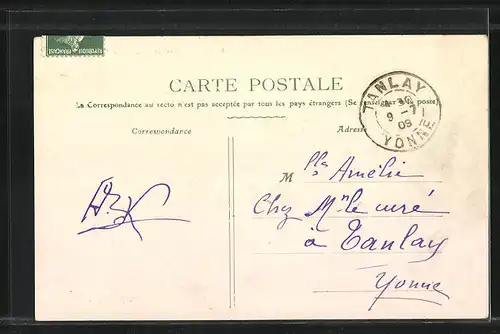 REPUBLIQUE FRANÇAISE
CARTE POSTALE
La Correspondance au recto n'est pas acceptée par tous les pays étrangers (Se renseigner à la poste)
TANLAY
9 - 7
09
YONNE
Correspondance
Adresse
M Amélie
Chez Mr le curé
à Tanlay
Yonne